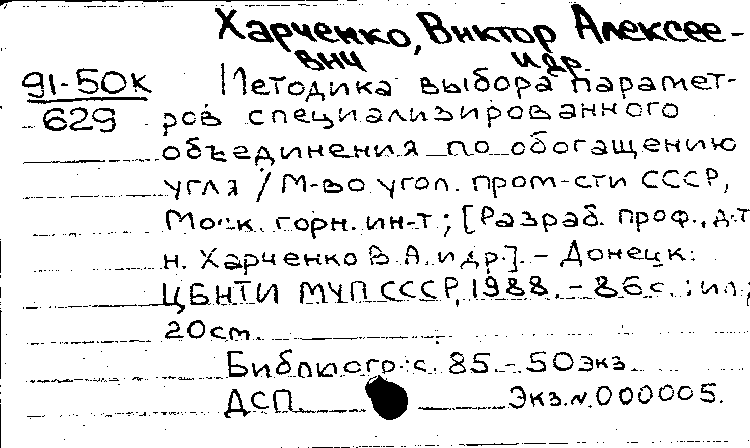 Харченко, Виктор Алексее-
вич и др.
91-50к Методика выбора парамет-
629 ров специализированного
объединения по обогащению
угля / М-во угол. пром-сти СССР,
Моск. горн. ин-т ; [Разраб. проф., д.т.
н. Харченко В.А. и др.]. – Донецк:
ЦБНТИ МУП СССР, 1988. – 86с. : ил.;
20см.
Библиогр.: с. 85 – 50 экз.
ДСП. Экз. N. 000005.